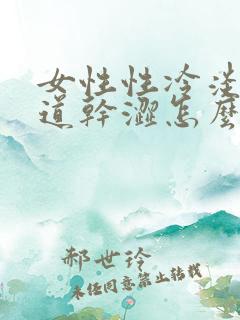 女性性冷淡
道幹澀怎麼
郝世玲
未经同意禁止转载